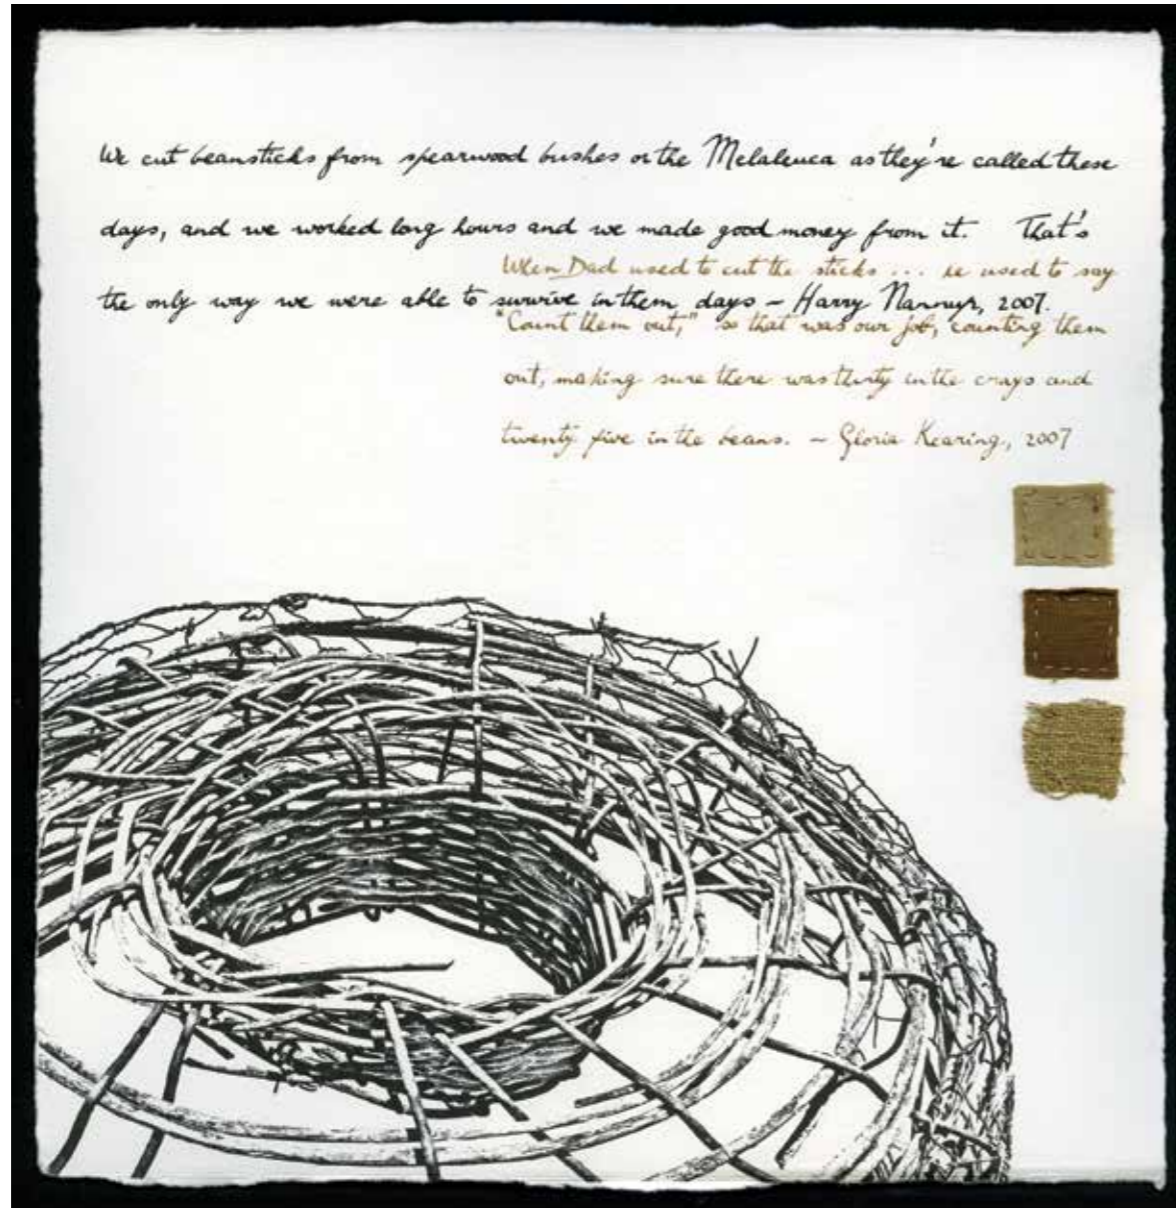 We cut beansticks from spearwood bushes or the Melaleuca as they're called these
days, and we worked long hours and we made good money from it. That's
the only way we were able to survive in them days – Harry Nannup, 2007.
When Dad used to cut the sticks ... he used to say
"Count them out," so that was our job, counting them
out, making sure there was thirty in the crays and
twenty five in the beans. – Gloria Kearing, 2007